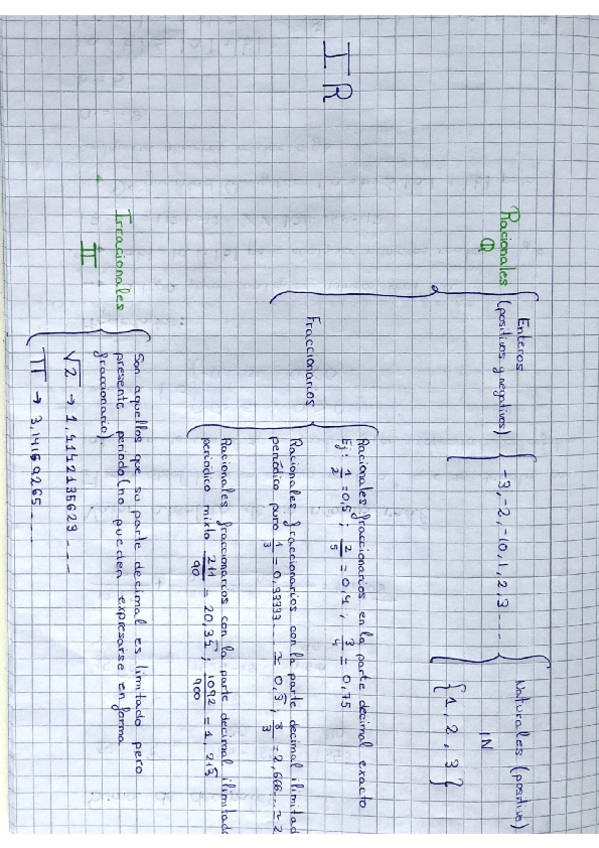 IR
Racionales
Q
Enteros
(positivos y negativos)
-3, -2, -10, 1, 2, 3 ...
Naturales (positivo)
IN
{1, 2, 3}
Fraccionarios
Racionales fraccionarios en la parte decimal exacto
Ej: 1/2 = 0,5 ; 2/5 = 0,4 ; 3/4 = 0,75
Racionales fraccionarios con la parte decimal ilimitad
periódico puro 1/3 = 0,33333... ≈ 0,3 ; 8/3 = 2,666... ≈ 2
Racionales fraccionarios con la parte decimal ilimitada
periódico mixto 211/90 = 20,35 ; 1092/900 = 1,213
Irracionales
II
Son aquellos que su parte decimal es limitado pero
presente periodo (no pueden expresarse en forma
fraccionario).
√2 → 1,4142135623 ...
π → 3,14169265 ....